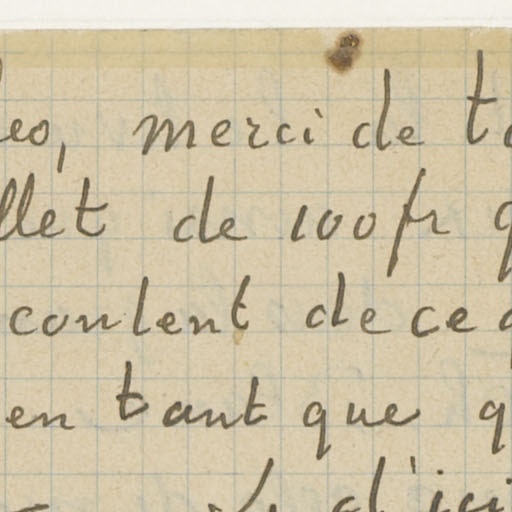 heo, merci de t
llet de 100 fr q
content de ce q
en tant que q
d'ici